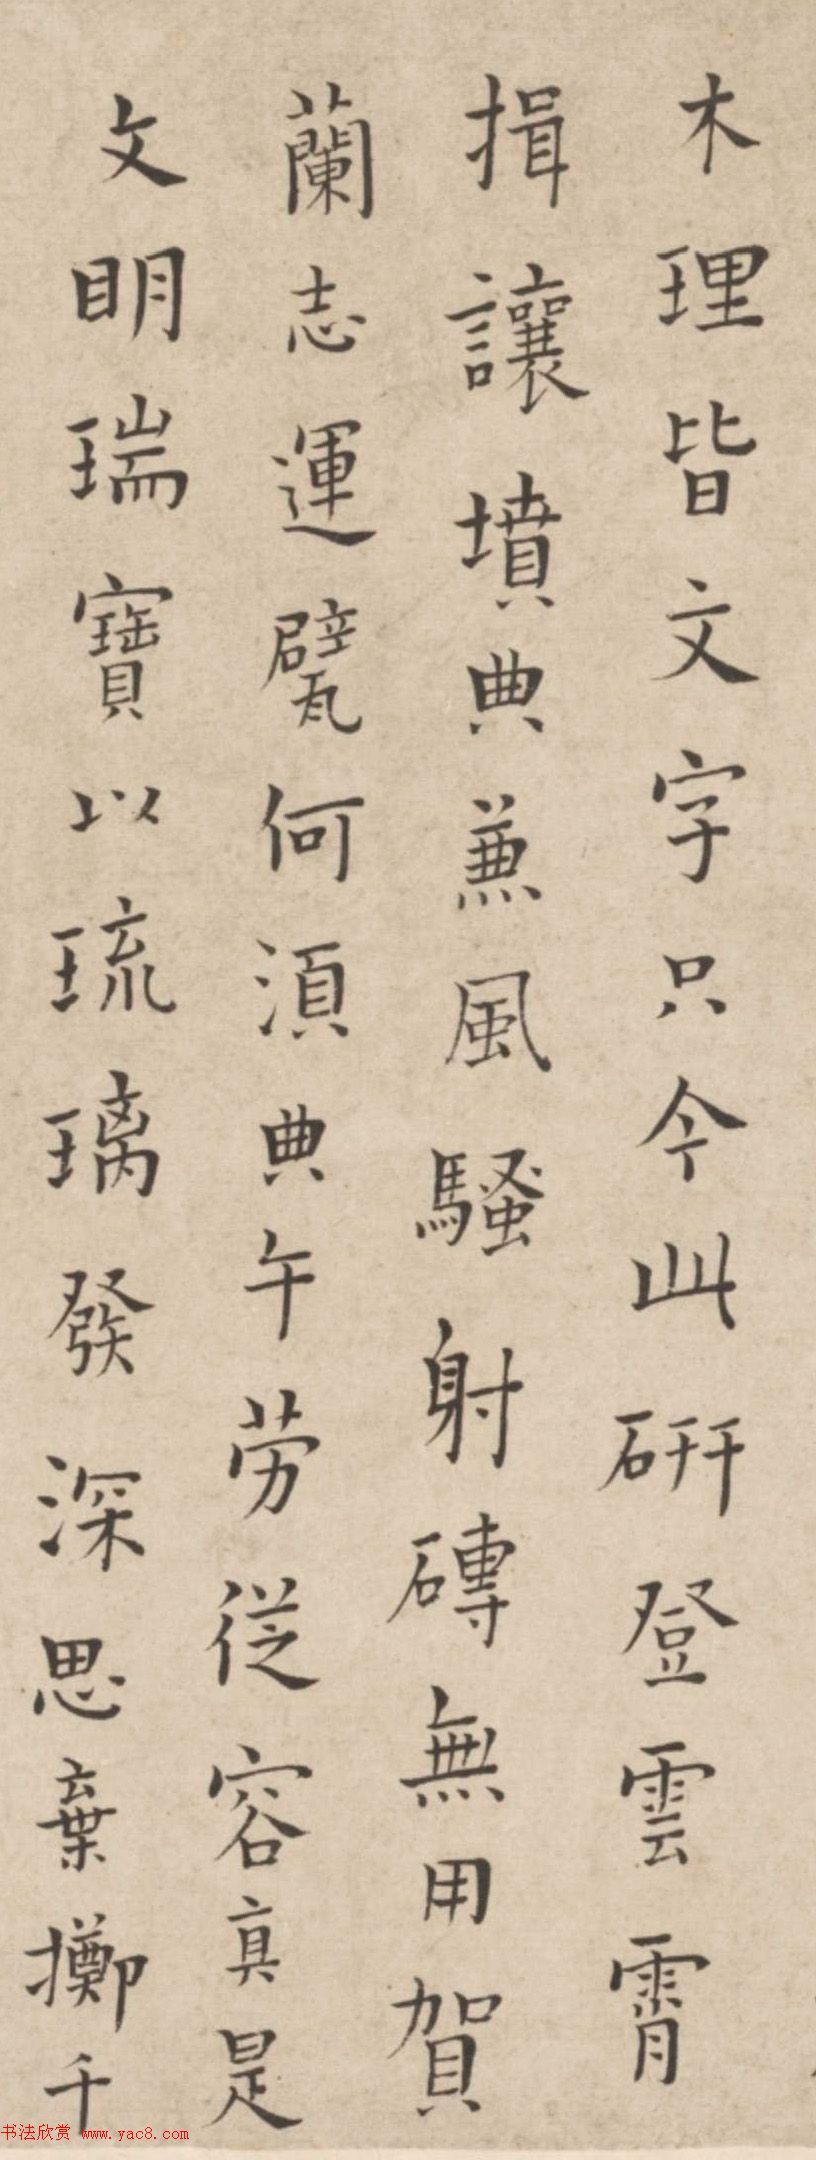 木理皆文字只今此研登雲霄
揖讓墳典兼風騷射磚無用賀
蘭志運甓何須典午勞從容真是
文明瑞寶以琉璃發深思棄擲千
书法欣赏 www.yac8.com